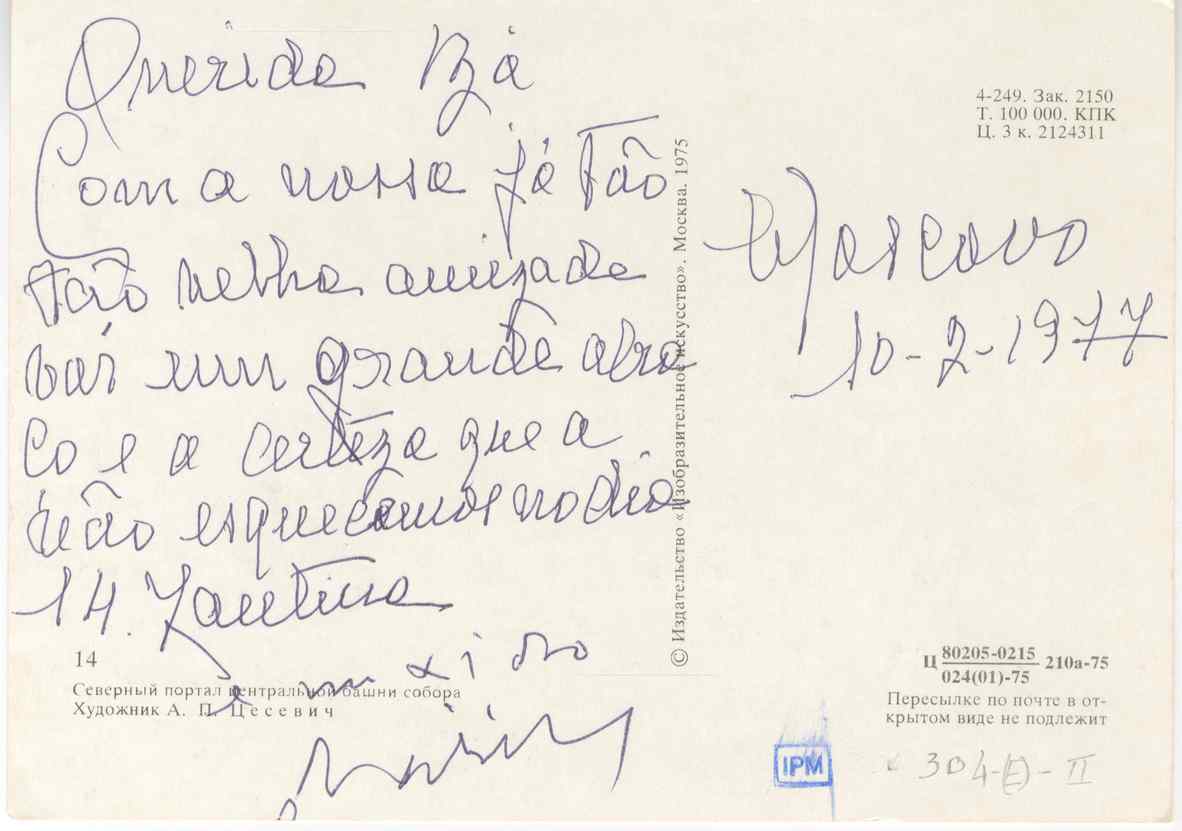 Querida Bá
Com a nossa já tão
tão velha amizade
vai um grande abra
ço e a certeza que a
não esquecemos no dia
14.
Moscovo
10-2-1977
4-249. Зак. 2150
Т. 100 000. КПК
Ц. 3 к. 2124311
© Издательство «Изобразительное искусство». Москва. 1975
14
Северный портал центральной башни собора
Художник А. П. Цесевич
Ц 80205-0215 210а-75
024(01)-75
Пересылке по почте в от-
крытом виде не подлежит
IPM
304-(E)-II